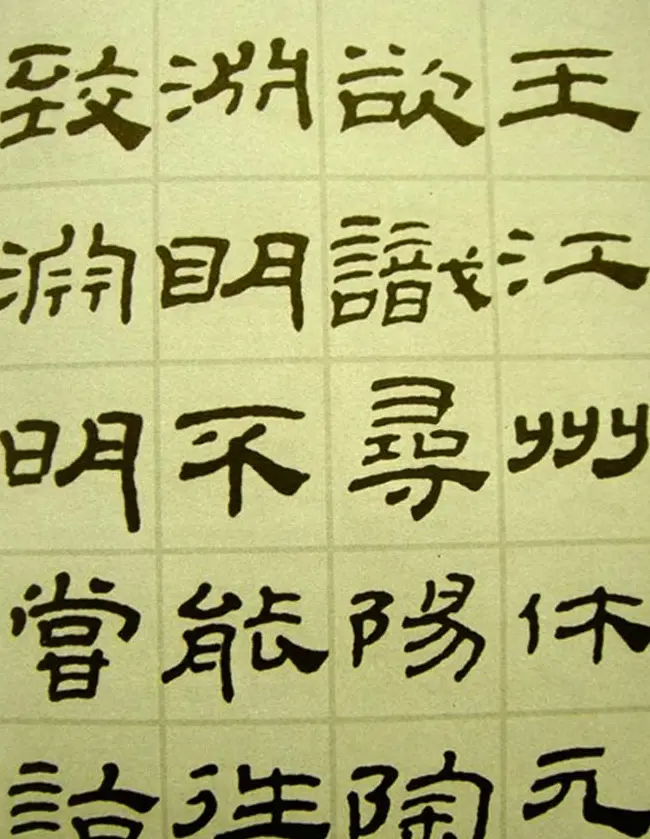 王江州休元
欲識尋陽陶
淵明不能徃
致淵明嘗詣